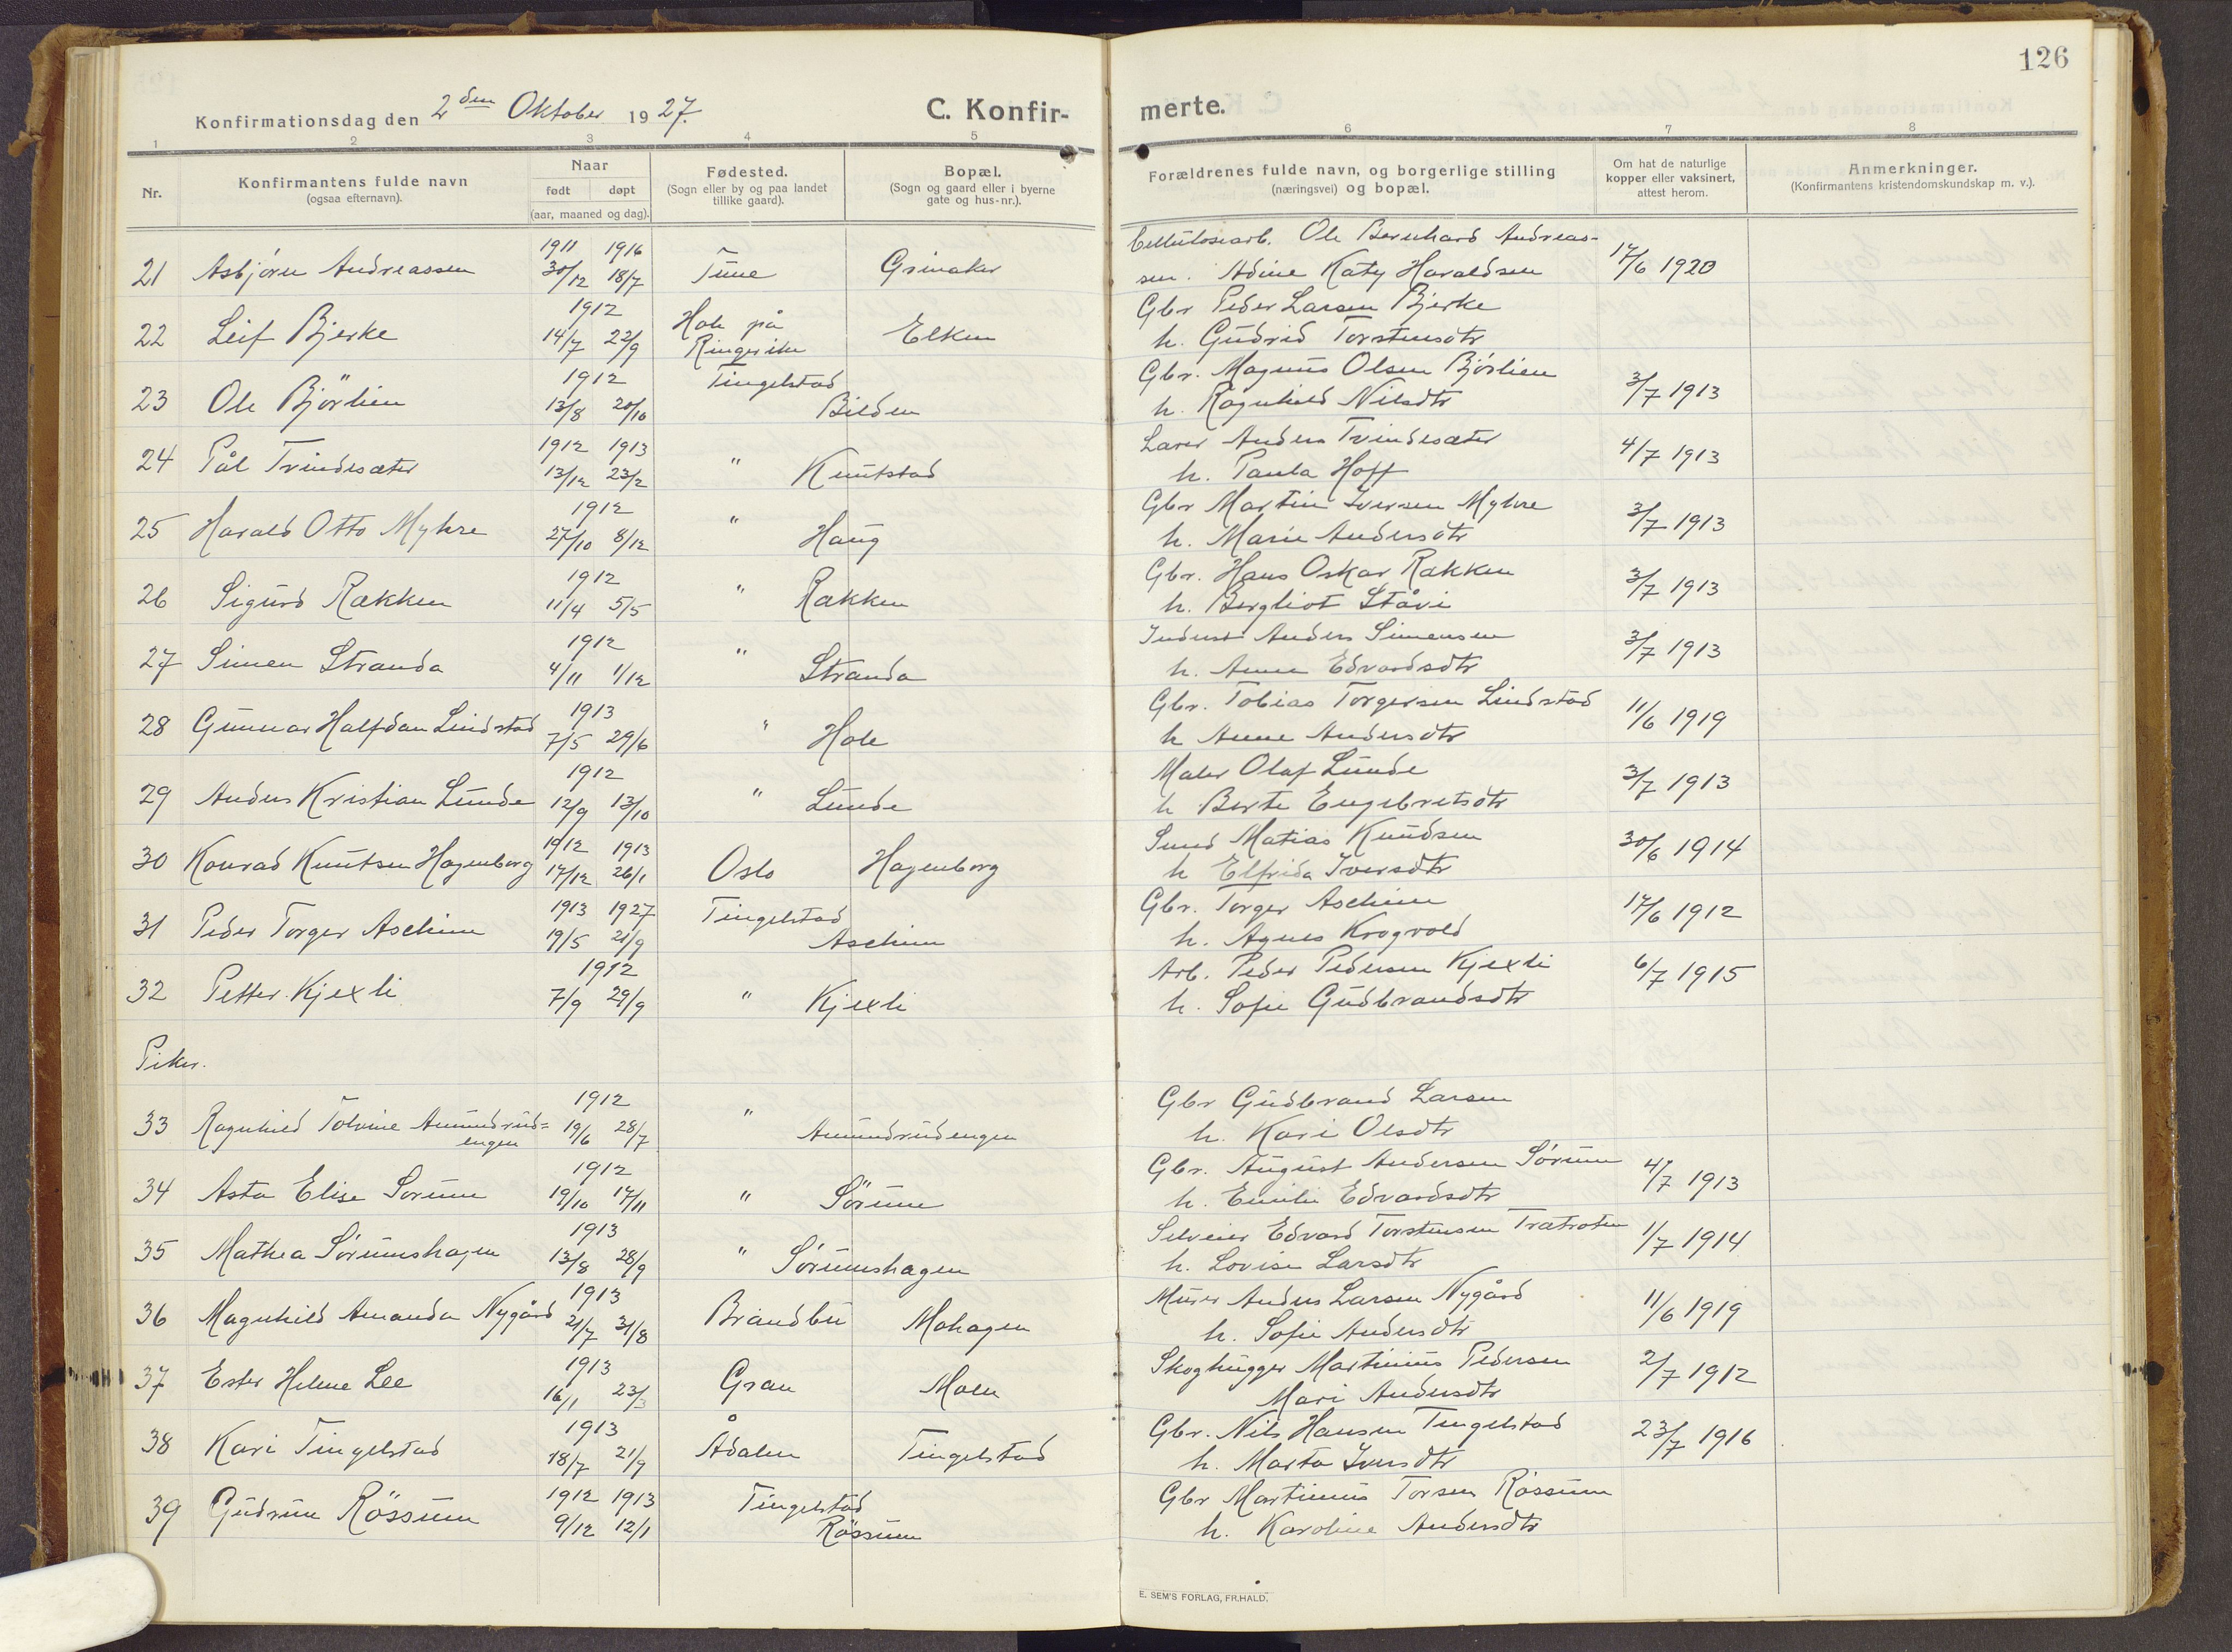 126
Konfirmationsdag den 2den Oktober 1927.
C. Konfirmerte.
1 2 3 4 5 6 7 8
Nr.
Konfirmantens fulde navn
(ogsaa efternavn).
Naar
født døpt
(aar, maaned og dag).
Fødested.
(Sogn eller by og paa landet
tillike gaard).
Bopæl.
(Sogn og gaard eller i byerne
gate og hus-nr.).
Forældrenes fulde navn, og borgerlige stilling
(næringsvei) og bopæl.
Om hat de naturlige
kopper eller vaksinert,
attest herom.
Anmerkninger.
(Konfirmantens kristendomskundskap m. v.).
1911 1916 Cellulosearb. Ole Bernhard Andreas-
21 Asbjörn Andreassen 30/12 18/7 Tune Grinaker sen. Adine Katy Haraldsen 17/6 1920
1912 Hole på Gbr Peder Larsen Bjerke
22 Leif Bjerke 14/7 22/9 Ringerike Elken h. Gudrid Torstensdtr
1912 Tingelstad Gbr. Magnus Olsen Björlien
23 Ole Björlien 13/8 20/10 Bilden h. Ragnhild Nilsdtr 3/7 1913
1912 1913 Lærer Anders Tvindesæter
24 Pål Tvindesæter 13/12 23/2 " Knutstad h. Paula Hoff 4/7 1913
1912 Gbr Martin Iversen Myhre
25 Harald Otto Myhre 27/10 8/12 " Haug h. Marie Andersdtr 3/7 1913
1912 Gbr. Hans Oskar Rækken
26 Sigurd Rækken 11/4 5/5 " Rækken h. Bergliot Ståvi 3/7 1913
1912 Indust. Anders Simensen
27 Simen Stranda 4/11 1/12 " Stranda h. Anne Edvardsdtr 3/7 1913
1913 Gbr. Tobias Torgersen Lindstad
28 Gunnar Halfdan Lindstad 7/5 29/6 " Hole h Anne Andersdtr 11/6 1919
1912 Maler Olaf Lunde
29 Anders Kristian Lunde 12/9 13/10 " Lunde h Berte Engebretsdtr 3/7 1913
1912 1913 Smed Matias Knudsen
30 Konrad Knutsen Hagenborg 17/12 26/1 Oslo Hagenborg h Elfrida Iversdtr 30/6 1914
1913 1927 Tingelstad Gbr. Torger Aschim
31 Peder Torger Aschim 19/5 21/9 Aschim h. Agnes Krogvold 17/6 1912
1912 Arb. Peder Pedersen Kjexli
32 Petter Kjexli 7/9 29/9 " Kjexli h. Sofie Gudbrandsdtr 6/7 1915
Piker.
1912 Gbr Gudbrand Larsen
33 Ragnhild Tolvine Amundrud= 19/6 28/7 " Amundrudengen h. Kari Olsdtr
engen
1912 Gbr. August Andersen Sörum
34 Asta Elise Sorum 19/10 17/11 " Sörum h. Emilie Edvardsdtr 4/7 1913
1913 Selveier Edvard Torstensen Trætroten
35 Mathea Sörumshagen 13/8 28/9 " Sörumshagen h. Lovise Larsdtr 1/7 1914
1913 Murer Anders Larsen Nygård
36 Magnhild Amanda Nygård 21/7 31/8 Brandbu Mohagen h. Sofie Andersdtr 11/6 1919
1913 Skoghugger Martinius Pedersen
37 Ester Helene Lee 16/1 23/3 Gran Moen Mari Andersdtr 2/7 1912
1913 Gbr. Nils Hansen Tingelstad
38 Kari Tingelstad 18/7 21/9 Ådalen Tingelstad h. Marta Iversdtr 23/7 1916
1912 1913 Tingelstad Gbr Martinius Torsen Røssum
39 Gudrun Rössum 9/12 12/1 Rössum h. Karoline Andersdtr
E. SEM'S FORLAG, FR.HALD.